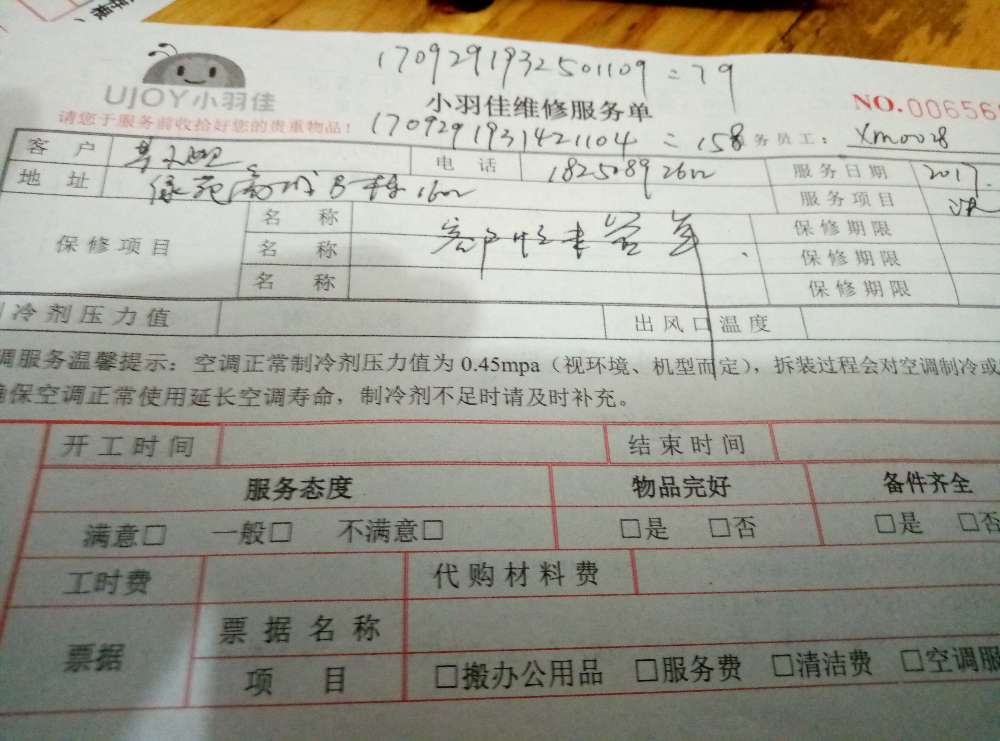 1709291932501109 = 79
UJOY小羽佳
小羽佳维修服务单
NO.00656
请您于服务前收拾好您的贵重物品！
1709291931421104 = 158
务员工： Xm0028
客 户
电 话
服务日期 2017.
地 址
服务项目
保修项目
名 称
保修期限
名 称
保修期限
名 称
保修期限
冷剂压力值
出风口温度
调服务温馨提示：空调正常制冷剂压力值为 0.45mpa（视环境、机型而定），拆装过程会对空调制冷或
确保空调正常使用延长空调寿命，制冷剂不足时请及时补充。
开工时间 结束时间
服务态度 物品完好 备件齐全
满意□ 一般□ 不满意□ □是 □否 □是 □否
工时费 代购材料费
票据
票据名称
项 目 □搬办公用品 □服务费 □清洁费 □空调服